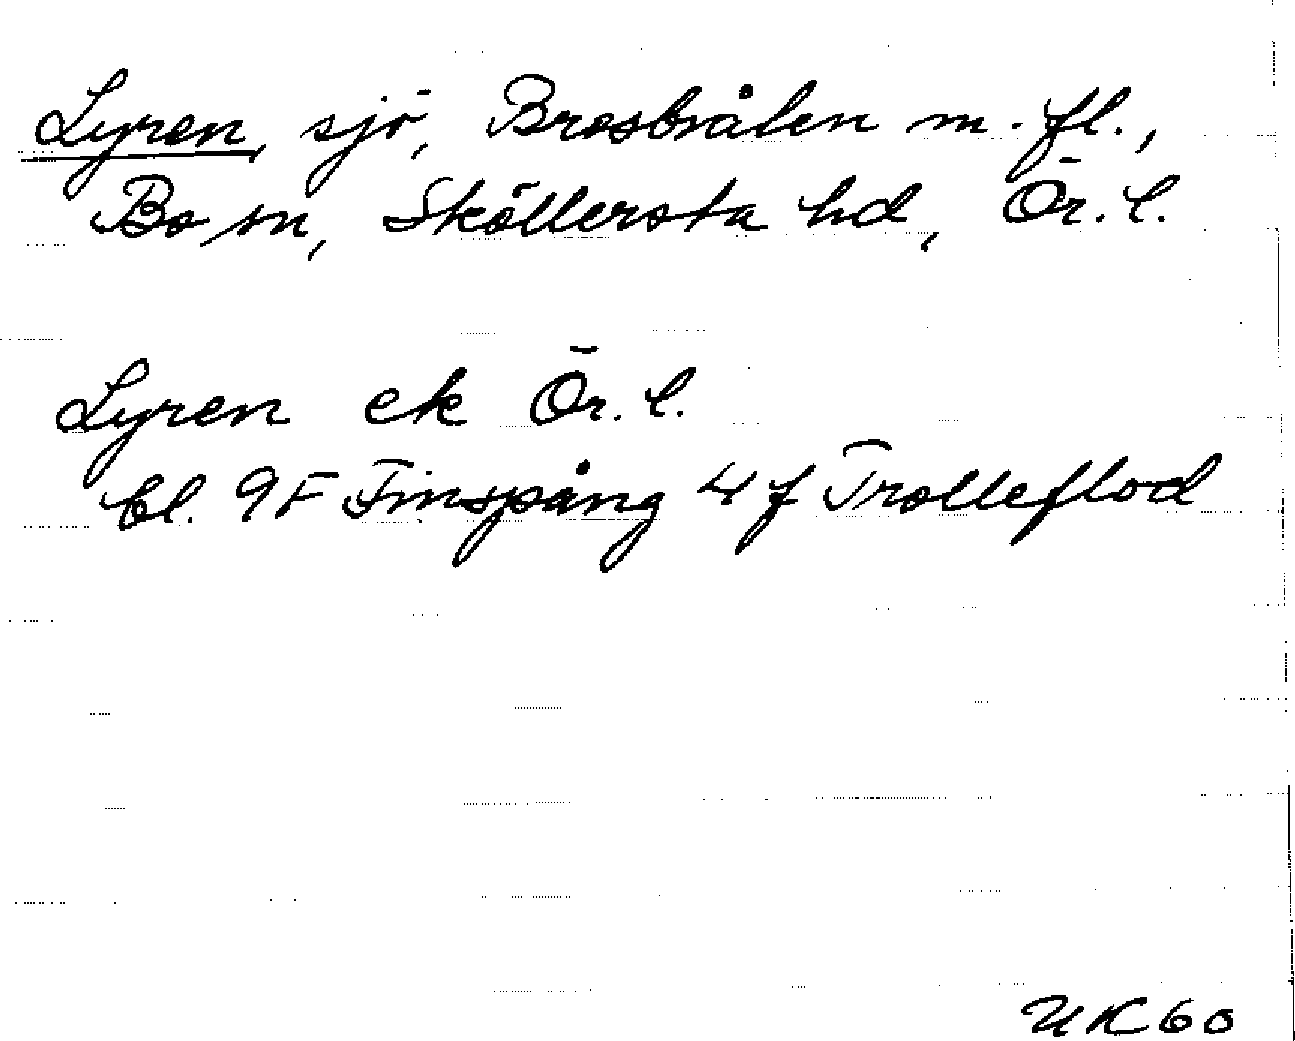 Lyren, sjö, Brosbråten m. fl.,
Bo sn, Sköllersta hd, Ör. l.
Lyren ek Ör. l.
bl. 9F Finspång 4 f Trolleflod
UK 60